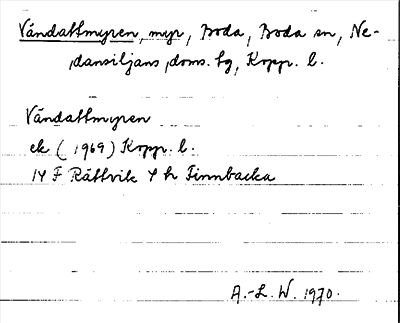 Våndattmyren, myr, Boda, Boda sn, Ne-
dansiljans doms. tg, Kopp. l.
Våndattmyren
ek (1969) Kopp. l.
14 F Rättvik 4 h Finnbacka
A.-L. W. 1970.